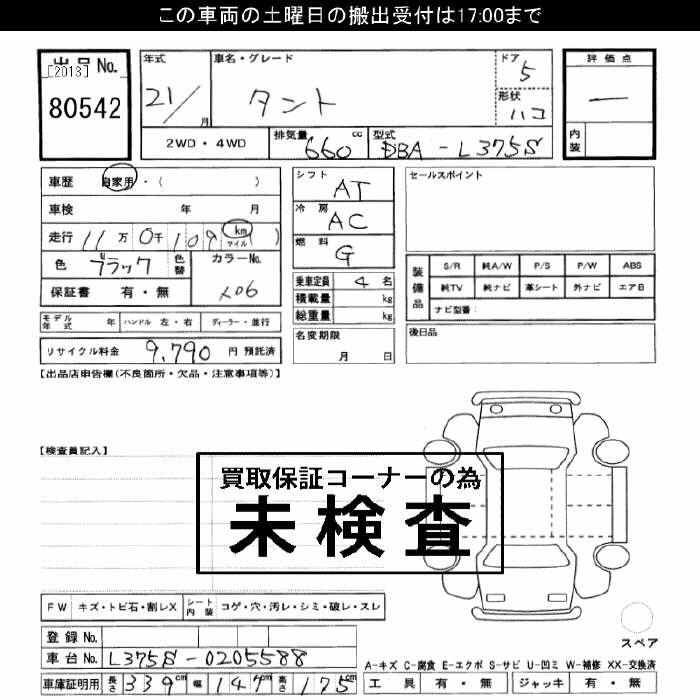 この車両の土曜日の搬出受付は17:00まで
出品No.
[2013]
80542
年式
21/
月
車名・グレード
タント
ドア
5
形状
ハコ
評価点
内装
2WD・4WD
排気量
660
cc
型式
DBA-L375S
車歴
自家用・( )
車検 年 月
走行 11万0千109 km マイル ( )
色 ブラック
色替
カラーNo.
X06
保証書 有・無
モデル年式 年
ハンドル 左・右
ディーラー・並行
リサイクル料金 9,790 円 預託済
シフト
AT
冷房
AC
燃料
G
乗車定員 4 名
積載量 kg
総重量 kg
名変期限
月 日
セールスポイント
装備品
S/R 純A/W P/S P/W ABS
純TV 純ナビ 革シート 外ナビ エアB
ナビ型番:
後日品
【出品店申告欄(不良箇所・欠品・注意事項等)】
【検査員記入】
買取保証コーナーの為
未検査
FW キズ・トビ石・割レX
シート内装 コゲ・穴・汚レ・シミ・破レ・スレ
登録No.
車台No. L375S-0205588
車庫証明用 長さ 339cm 幅 147cm 高さ 175cm
スペア
A-キズ C-腐食 E-エクボ S-サビ U-凹ミ W-補修 XX-交換済
工具 有・無 ジャッキ 有・無